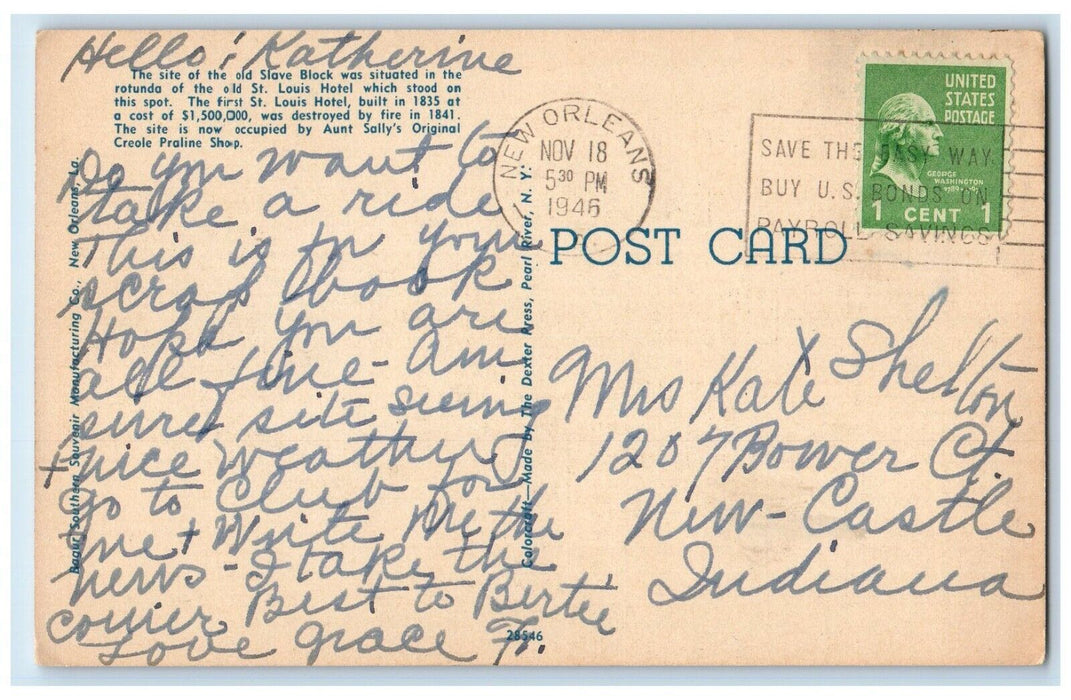 Hello! Katherine
The site of the old Slave Block was situated in the
rotunda of the old St. Louis Hotel which stood on
this spot. The first St. Louis Hotel, built in 1835 at
a cost of $1,500,000, was destroyed by fire in 1841.
The site is now occupied by Aunt Sally's Original
Creole Praline Shop.
Do you want to
take a ride
This is for your
scrap book
Hope you are
all fine - am
sure site seeing
+ nice weather
Go to Club for
me + Write me the
news - I take the
courier Best to Bertie
Love Grace Fr.
Bagur Southern Souvenir Manufacturing Co., New Orleans, La.
Colorcraft—Made by The Dexter Press, Pearl River, N. Y.
28546
NEW ORLEANS
NOV 18
5 30 PM
1946
SAVE THE EASY WAY
BUY U.S. BONDS ON
PAYROLL SAVINGS
UNITED
STATES
POSTAGE
GEORGE
WASHINGTON
1789-1797
1 CENT 1
POST CARD
Mrs Kate Shelton
1207 Bower Ct.
New-Castle
Indiana